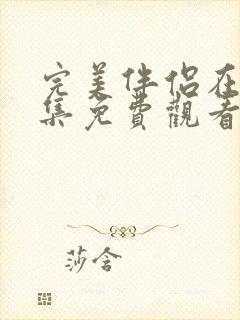 完美伴侶在
集免費觀看
莎含